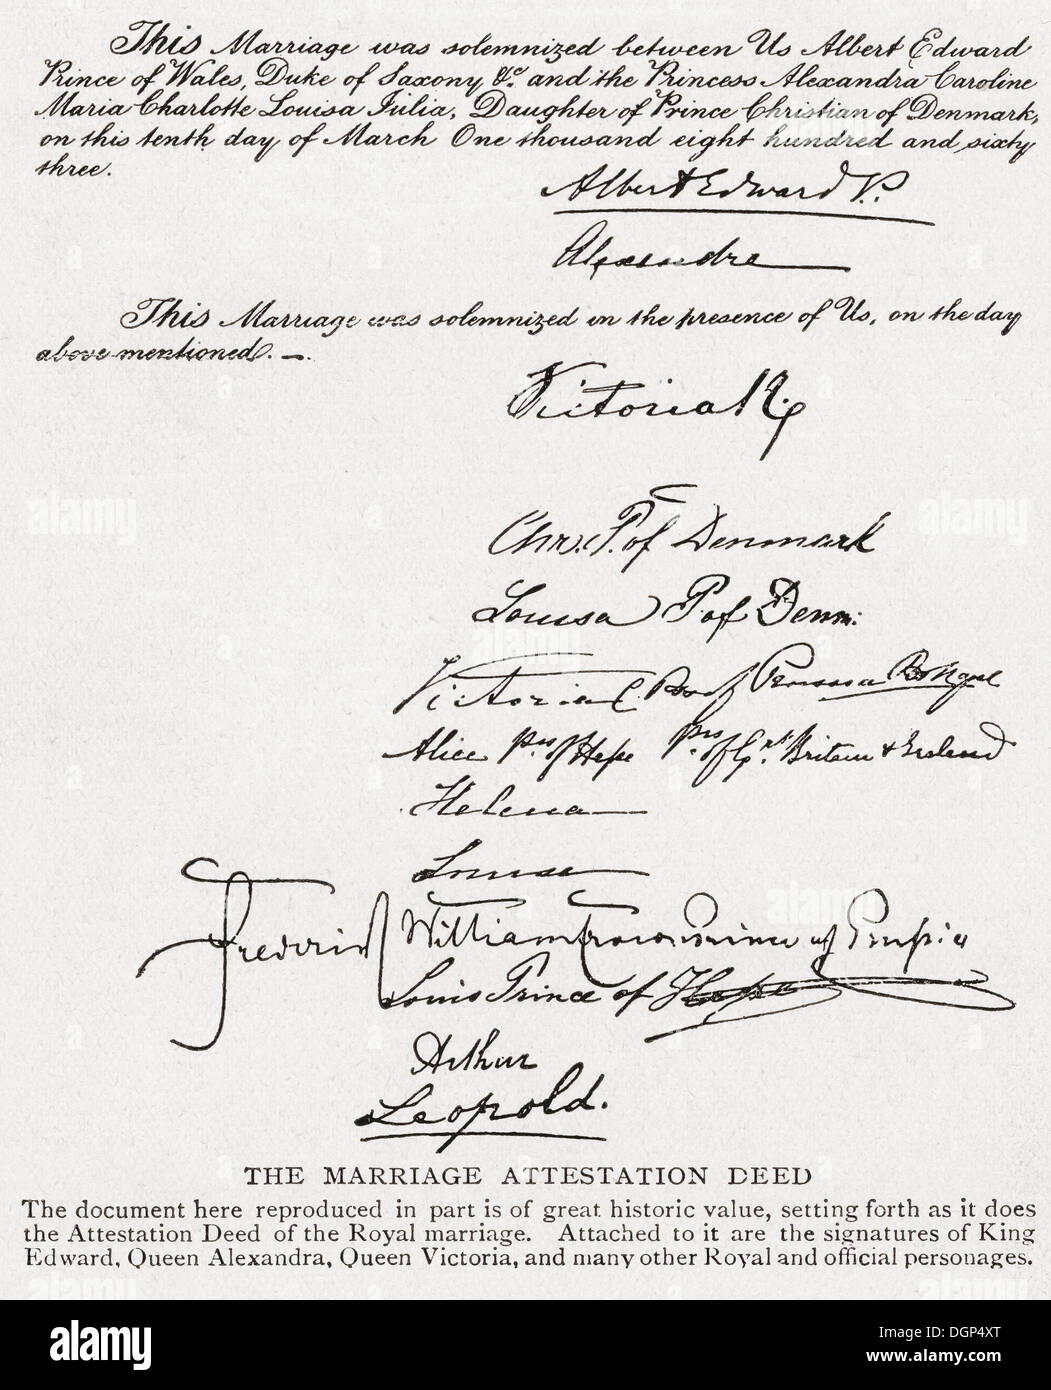 This Marriage was solemnized between Us Albert Edward
Prince of Wales, Duke of Saxony &c. and the Princess Alexandra Caroline
Maria Charlotte Louisa Julia, Daughter of Prince Christian of Denmark,
on this tenth day of March One thousand eight hundred and sixty
three.
Albert Edward P.
Alexandra
This Marriage was solemnized in the presence of Us, on the day
above mentioned. —.
Victoria R.
Chr. P. of Denmark
Louisa P of Denm:
Victoria C. Pss of Prussia Pss Royal
Alice Pss of Hesse Pss of Gt. Britain & Ireland
Helena
Louise
Frederick William Crown Prince of Prussia
Louis Prince of Hesse
Arthur
Leopold.
THE MARRIAGE ATTESTATION DEED
The document here reproduced in part is of great historic value, setting forth as it does
the Attestation Deed of the Royal marriage. Attached to it are the signatures of King
Edward, Queen Alexandra, Queen Victoria, and many other Royal and official personages.
alamy
Image ID: DGP4XT
www.alamy.com